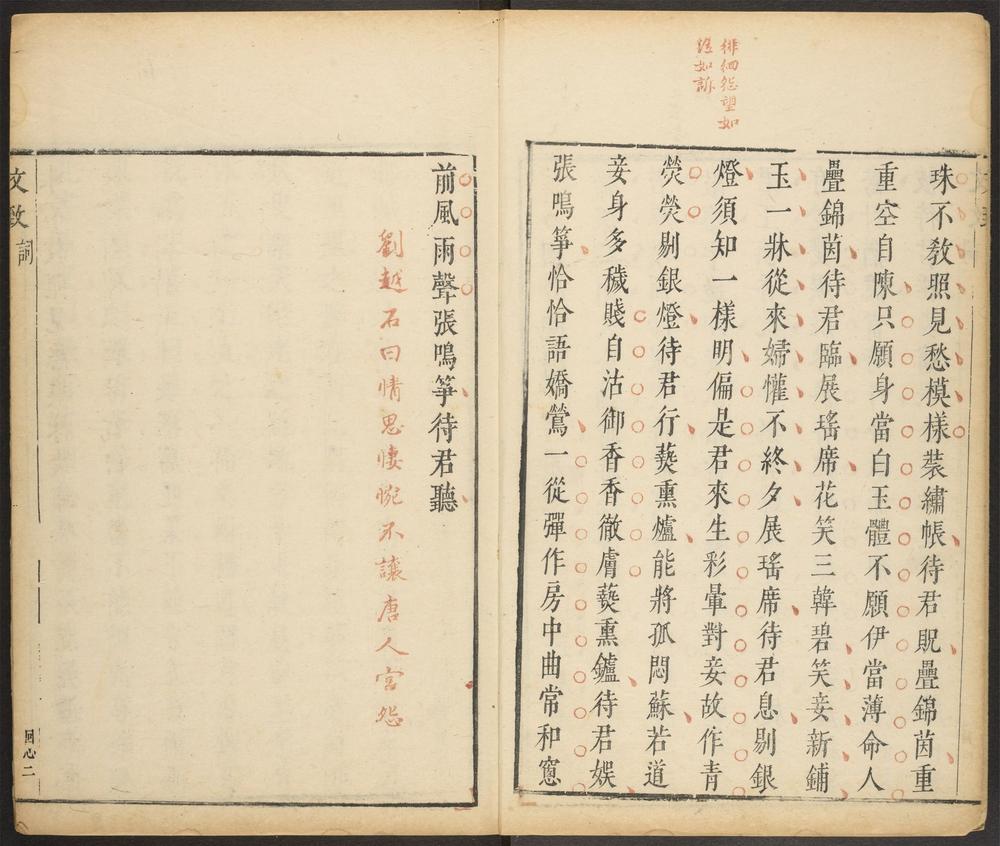 徘徊怨望如
怨如訴
珠不敎照見愁模樣裝繡帳待君貺疊錦茵重
重空自陳只願身當白玉體不願伊當薄命人
疊錦茵待君臨展瑤席花笑三韓碧笑妾新鋪
玉一牀從來婦懽不終夕展瑤席待君息剔銀
燈須知一樣明偏是君來生彩暈對妾故作青
熒熒剔銀燈待君行爇熏爐能將孤悶蘇若道
妾身多穢賤自沾御香香徹膚爇熏鑪待君娛
張鳴箏恰恰語嬌鶯一從彈作房中曲常和窻
前風雨聲張鳴箏待君聽
劉越石曰情思悽惋不讓唐人宮怨
文致 詞
回心二